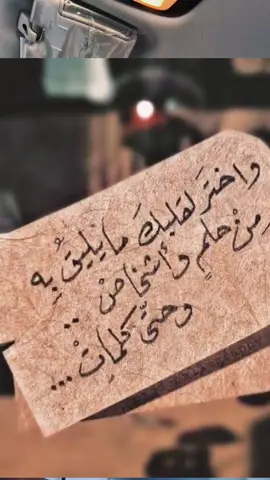 واخترَ لقلبكَ ما يليقُ بِهِ
مِنْ حلمٍ وأشخاصْ ..
وحتىّ كلماتْ ...